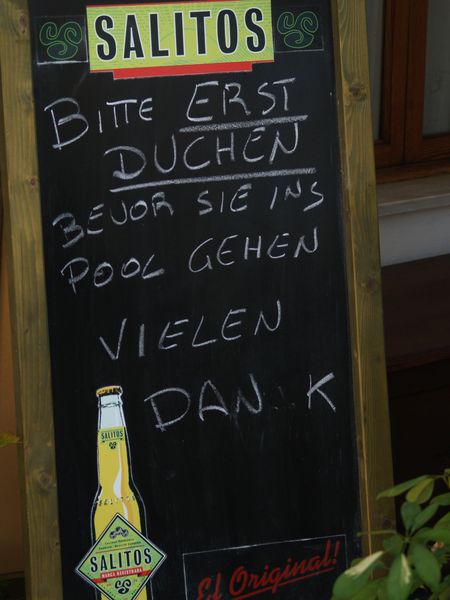 SALITOS
BITTE ERST
DUCHEN
BEVOR SIE INS
POOL GEHEN
VIELEN
DANK
SALITOS
SALITOS
SALITOS
MARCA REGISTRADA
El Original!